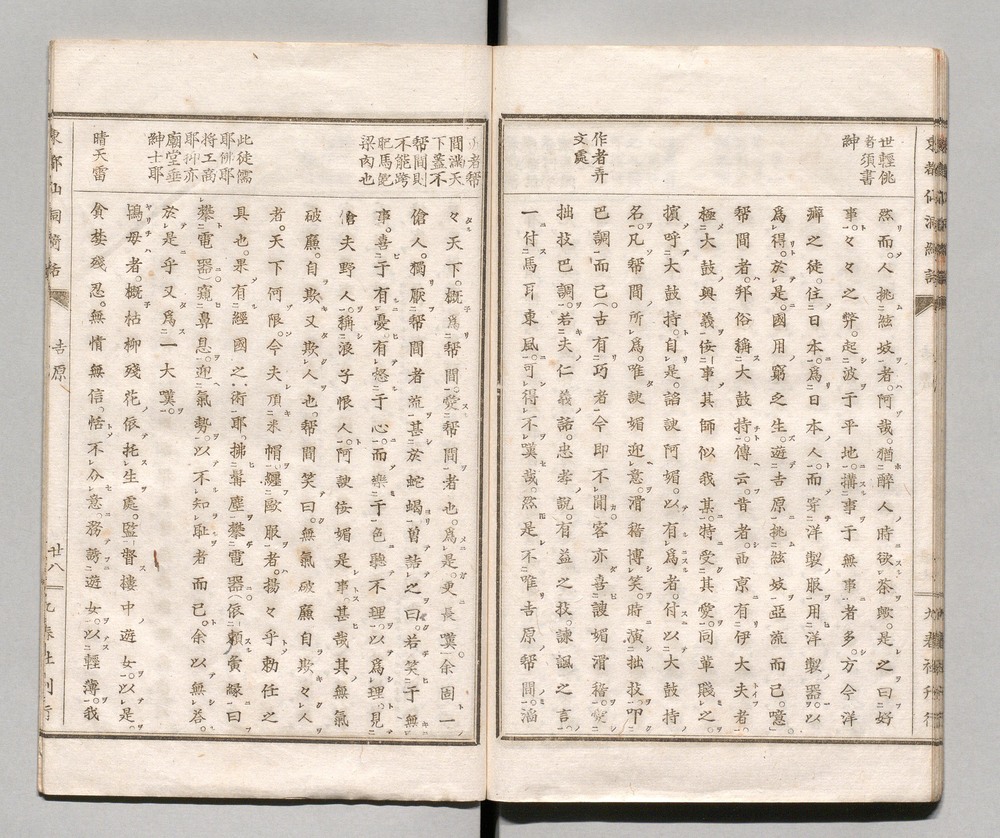 世輕佻
者須書
紳
作者弄
文處
然而。人挑絃妓者。阿哉。猶醉人時欲茶歟。是之曰好
事。々々之弊。起波于平地。搆事于無事者多。方今洋
癖之徒。住日本。爲日本人。而穿洋製服。用洋製器。以
爲得。於是。國用窮之生。遊吉原。挑絃妓亞流而已。噫。
幇間者。邦俗稱大鼓持。傳云。昔者。西京有伊大夫者。
極大鼓與義侫。事其師似我某。特受其愛。同輩賤之。
擯呼大鼓持。自是。諂諛阿媚。以有爲者。付以大鼓持
名。凡幇間所爲。唯諛媚迎意。滑稽博笑。時演拙技。叩
巴調而已。古有巧者。今即不聞。客亦喜諛媚滑稽。
拙技巴調。若夫仁義話。忠孝說。有益之技。諫諷之言。
一付馬耳東風。可得不嘆哉。然是不唯吉原幇間。滔
間滿天
下蓋不
幇間則
不能跨
肥馬飽
梁肉也
此徒儒
耶佛耶
將工商
耶抑亦
廟堂垂
紳士耶
晴天雷
々天下。概爲幇間。愛幇間者也。爲是。更長嘆。余固一
傖人。獨厭幇間者流。甚於蛇蝎。曾詰之曰。若笑于無
事。喜于有憂。有怒于心。而樂于色。聽不理。以爲理。見
傖夫野人。稱浪子恨人。阿諛侫媚是事。甚哉其無氣
破廉。自欺又欺人也。幇間笑曰。無氣破廉自欺々人
者。天下何限。今夫頂米帽。纒歐服者。揚々乎勅任之
具也。果有經國之術耶。拂髯塵。攀電器。依賴夤緣曰
攀電器。窺鼻息。迎氣勢。以不知耻者而已。余以無答。
於是乎又爲一大嘆。
鴇母者。概枯柳殘花。依托生處。監督樓中遊女。以是。
貪婪殘忍。無憤無信。恬不介意。務誘遊女。以輕薄。我
吉原
廿八
九春社刊行